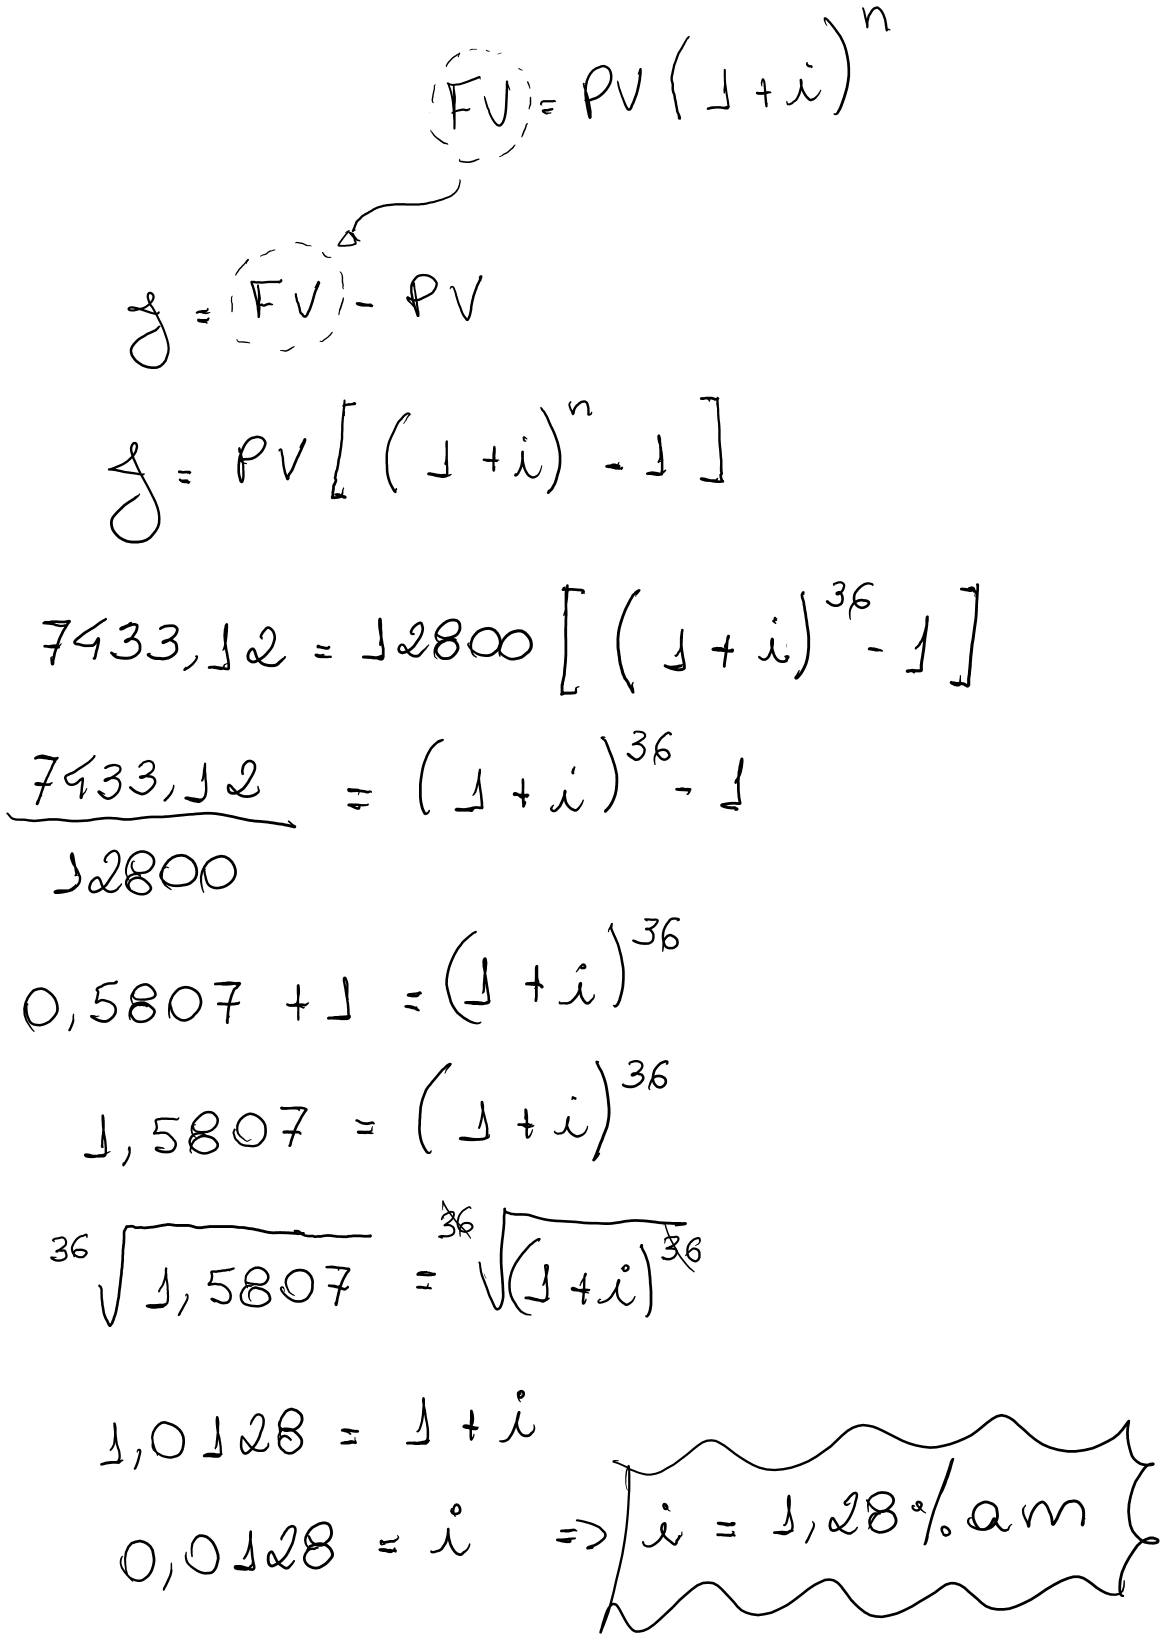 FV = PV (1 + i)^n
J = FV - PV
J = PV [ (1 + i)^n - 1 ]
7433,12 = 12800 [ (1 + i)^36 - 1 ]
7433,12 / 12800 = (1 + i)^36 - 1
0,5807 + 1 = (1 + i)^36
1,5807 = (1 + i)^36
36√1,5807 = 36√(1 + i)^36
1,0128 = 1 + i
0,0128 = i => i = 1,28% am